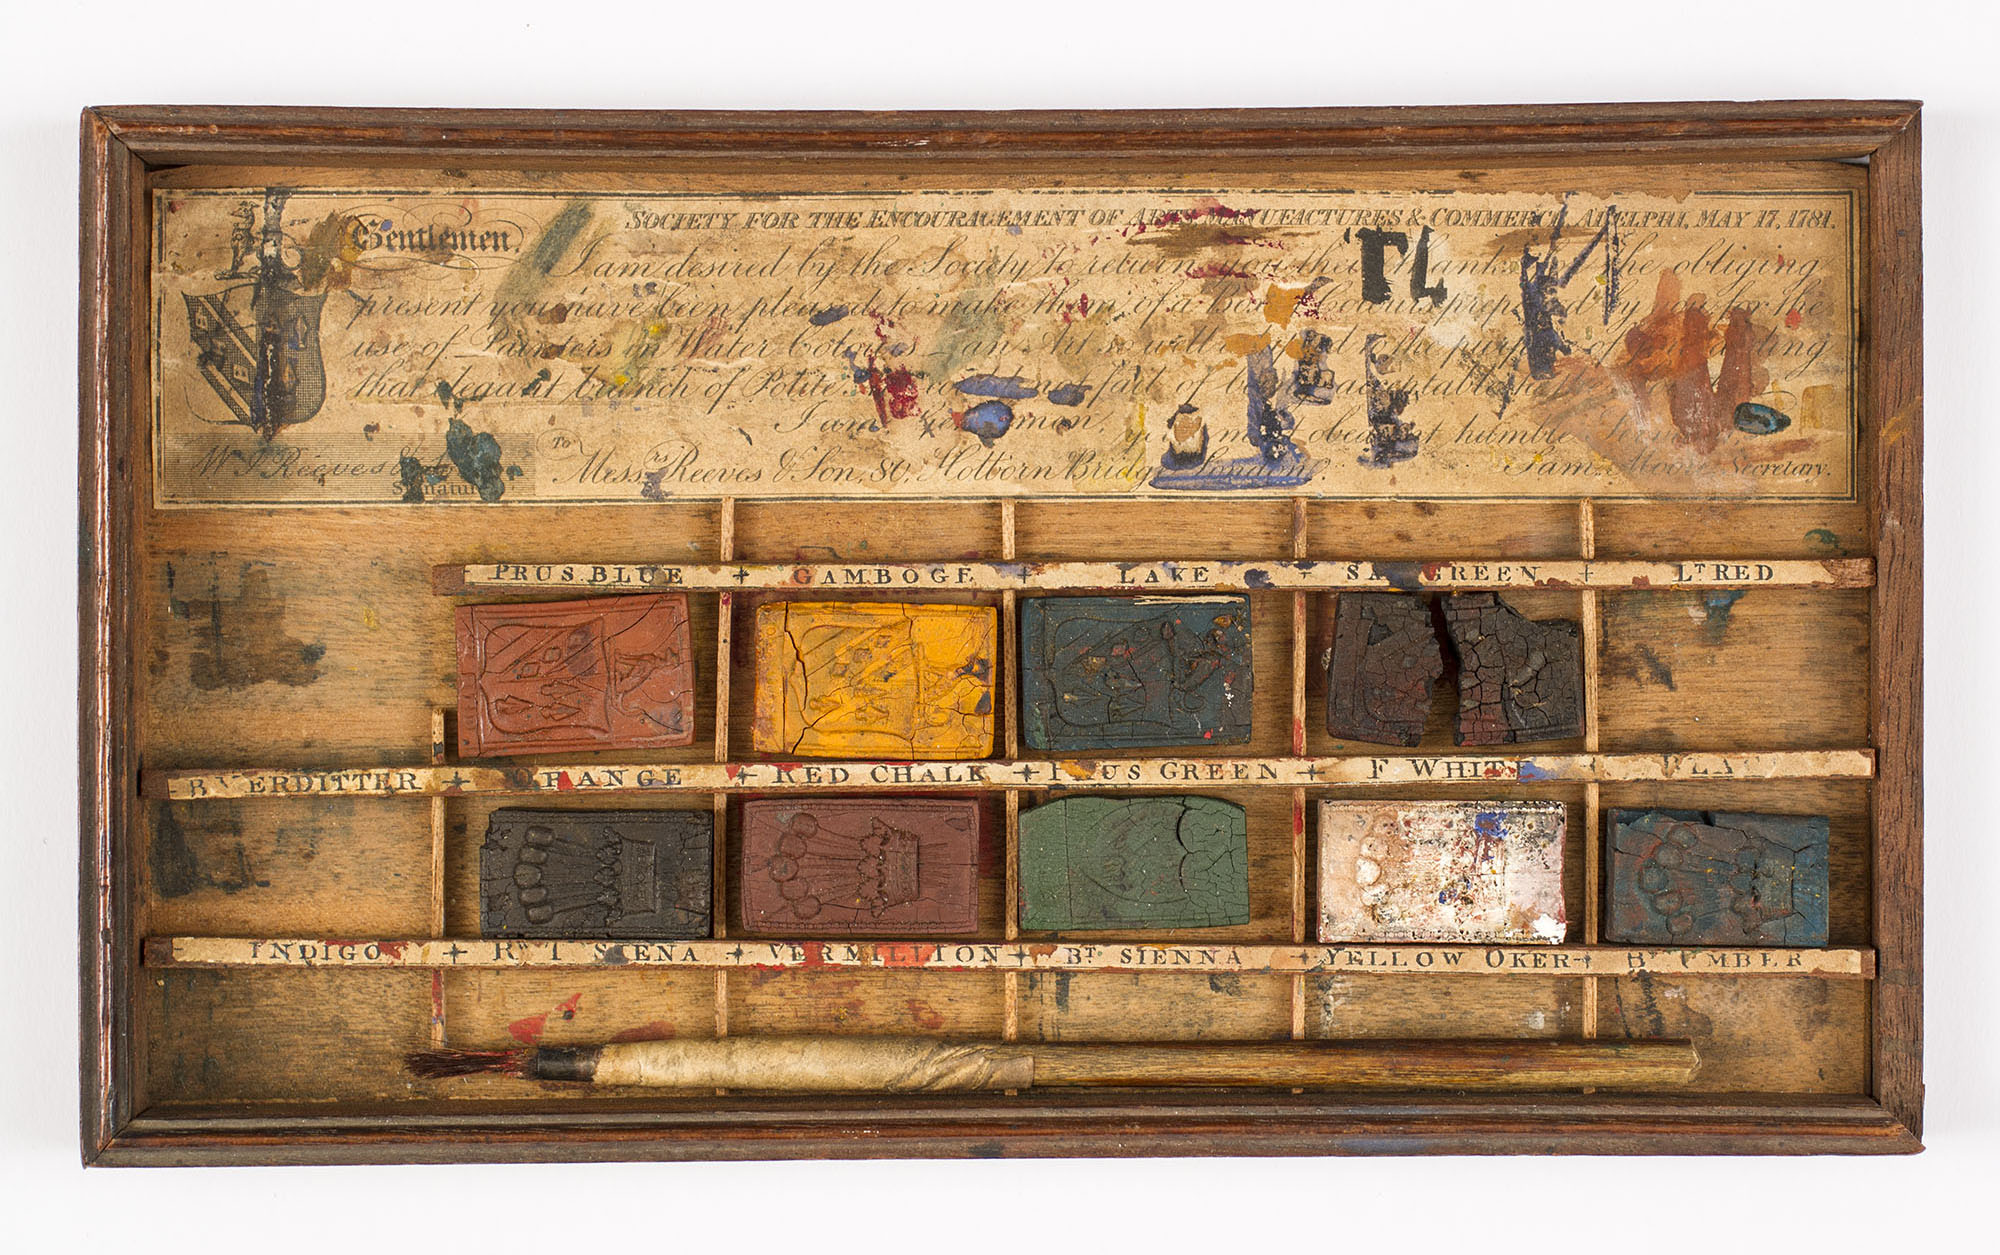 SOCIETY FOR THE ENCOURAGEMENT OF ARTS MANUFACTURES & COMMERCE, ADELPHI, MAY 17, 1781.
Gentlemen,
I am desired by the Society to return you their thanks for the obliging
present you have been pleased to make them of a Box of Colours prepared by you for the
use of Painters in Water Colours an Art so well to the purpose of
that elegant branch of Polite not fail of being acceptable
I am Gentlemen,
your most obedient humble
W. J Reeves
Signature
To
Messrs Reeves & Son, 80, Holborn Bridge London.
Sam. Moore Secretary.
PRUS.BLUE + GAMBOGE + LAKE + SAP GREEN + LT RED
B VERDITTER + ORANGE + RED CHALK + PRUS GREEN + F WHITE BLACK
INDIGO + RW T SIENA + VERMILLION + BT SIENNA + YELLOW OKER + BT UMBER